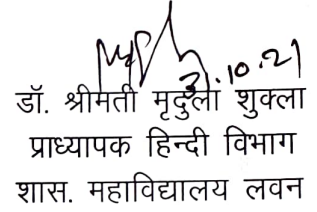 31.10.21
डॉ. श्रीमती मृदुला शुक्ला
प्राध्यापक हिन्दी विभाग
शास. महाविद्यालय लवन